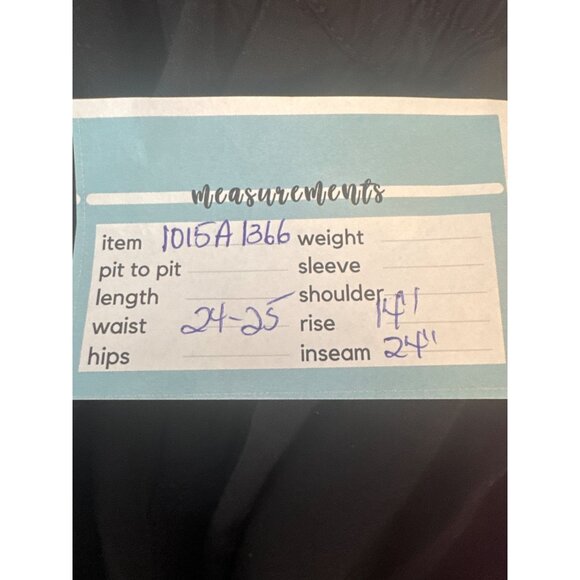 measurements
item 1015A1366 weight
pit to pit sleeve
length shoulder
waist 24-25 rise 14"
hips inseam 24"